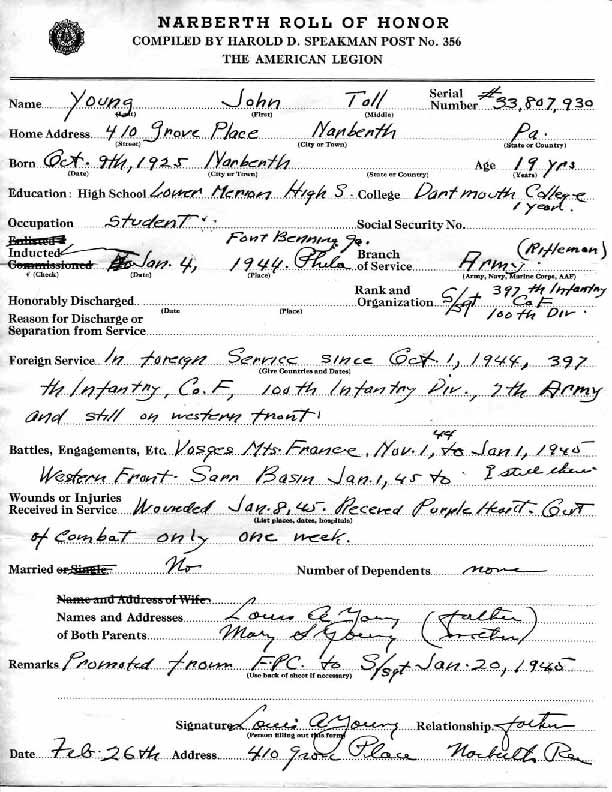 NARBERTH ROLL OF HONOR
COMPILED BY HAROLD D. SPEAKMAN POST No. 356
THE AMERICAN LEGION
Name Young John Toll Serial Number #33,807,930
(Last) (First) (Middle)
Home Address 410 Grove Place Narberth Pa.
(Street) (City or Town) (State or Country)
Born Oct. 9th, 1925 Narberth Age 19 yrs
(Date) (City or Town) (State or Country) (Years)
Education: High School Lower Merion High S. College Dartmouth College
1 year.
Occupation Student Social Security No.
Enlisted
Inducted Fort Benning Ga. Branch (Rifleman)
Commissioned Jan. 4, 1944. Phila of Service Army
√ (Check) (Date) (Place) (Army, Navy, Marine Corps, AAF)
Rank and 397th Infantry
Honorably Discharged Organization S/Sgt Co F
(Date (Place) 100th Div.
Reason for Discharge or
Separation from Service
Foreign Service In foreign Service since Oct. 1, 1944, 397
(Give Countries and Dates)
th Infantry, Co. F, 100th Infantry Div., 7th Army
and still on western front.
Battles, Engagements, Etc. Vosges Mts. France, Nov. 1, 44 to Jan 1, 1945
Western Front- Sarr Basin Jan. 1, 45 to I still there
Wounds or Injuries
Received in Service Wounded Jan. 8, 45. Receved Purple Heart. Out
(List places, dates, hospitals)
of combat only one week.
Married or Single No Number of Dependents none
Name and Address of Wife
Names and Addresses Louis A Young (father)
of Both Parents Mary S Young (mother)
Remarks Promoted from FPC. to S/sgt Jan. 20, 1945
(Use back of sheet if necessary)
Signature Louis A Young Relationship father
(Person filling out this form)
Date Feb. 26th Address 410 Grove Place Narberth